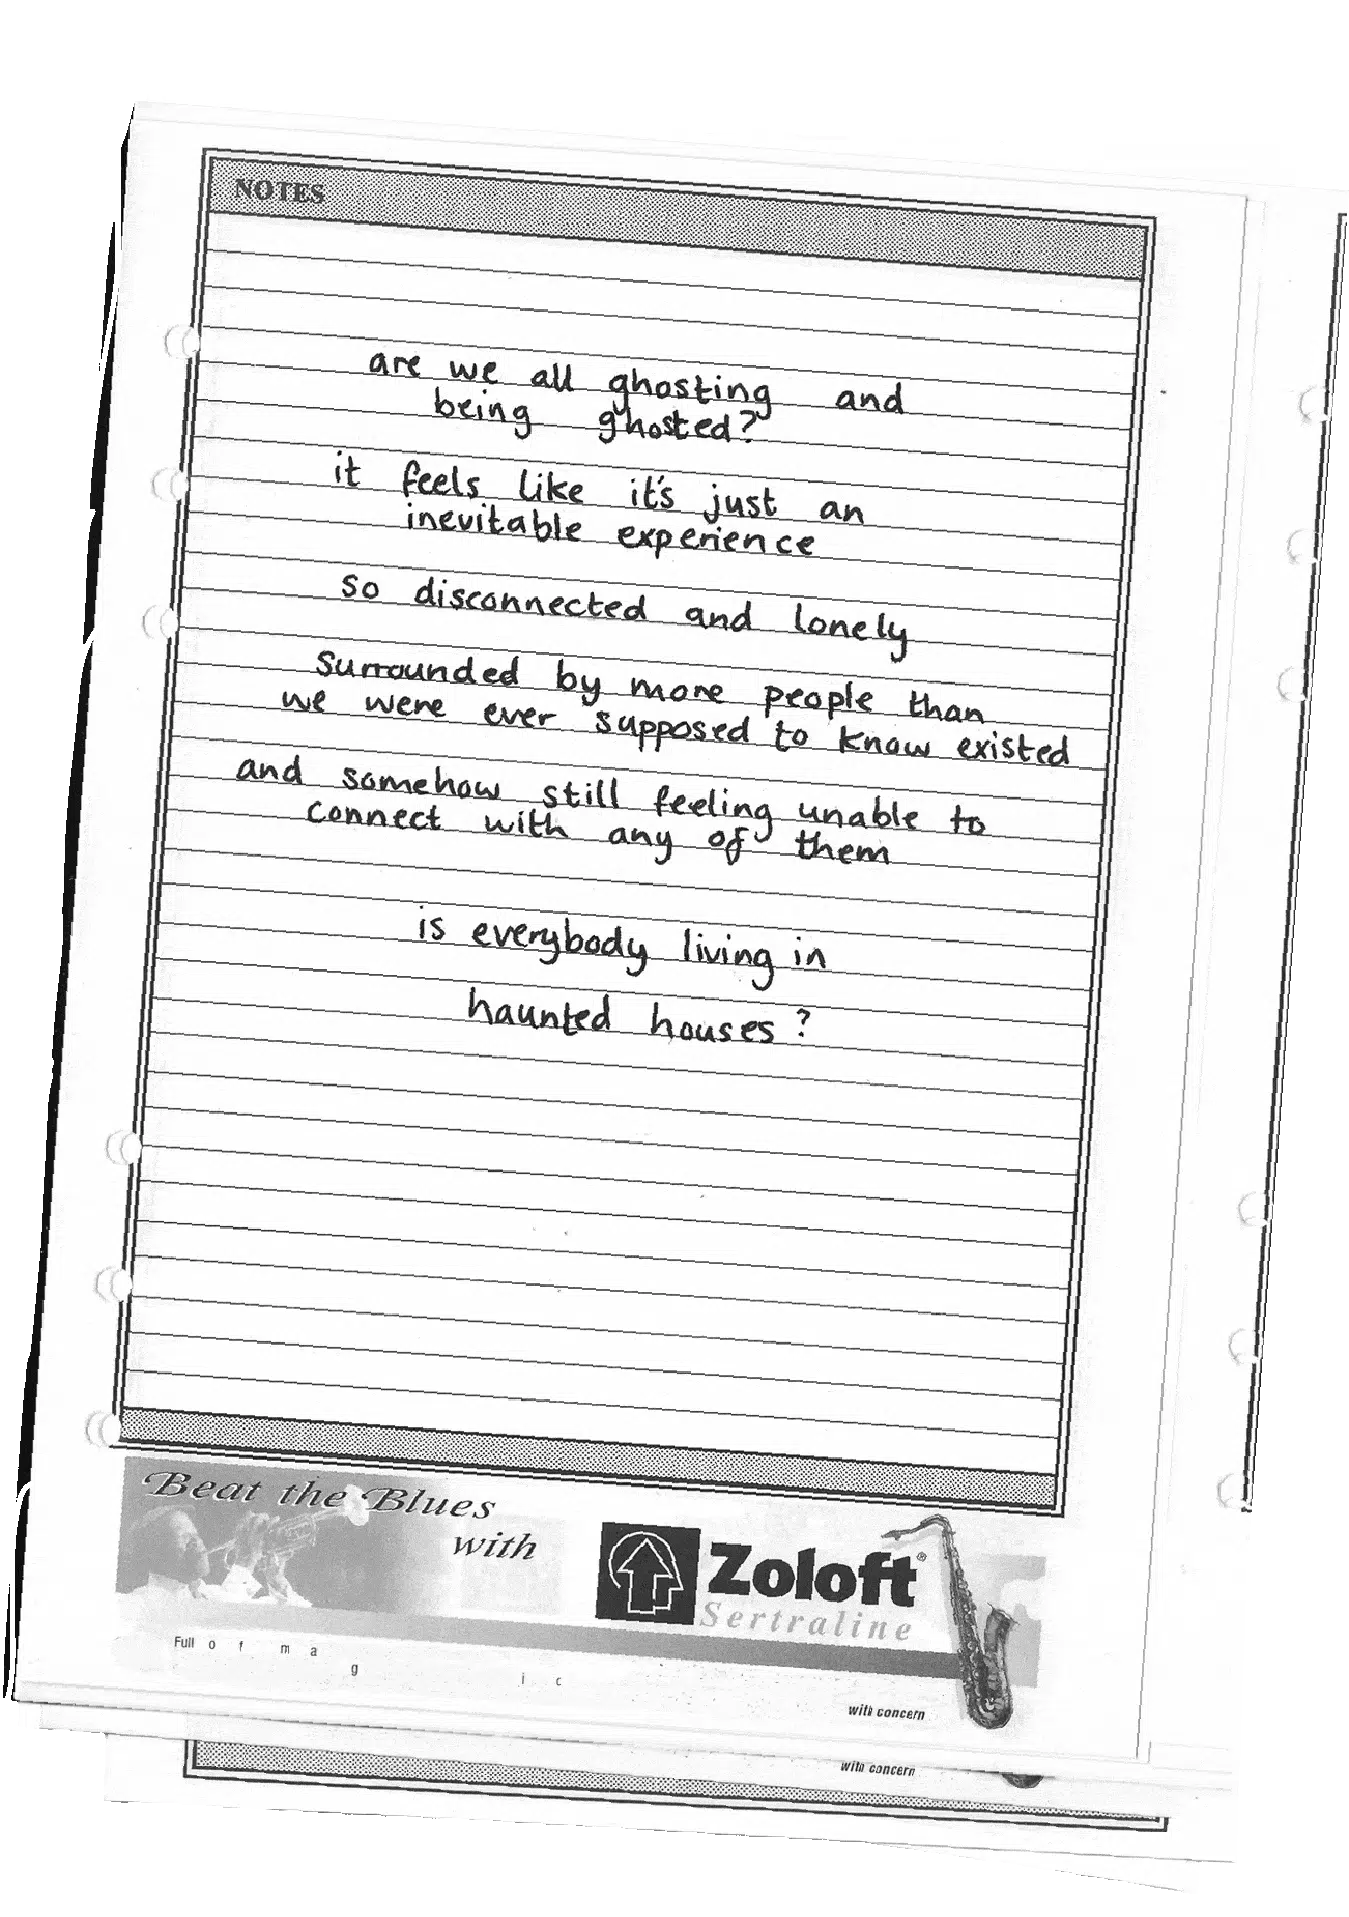 NOTES
are we all ghosting and
being ghosted?
it feels like it's just an
inevitable experience
so disconnected and lonely
surrounded by more people than
we were ever supposed to know existed
and somehow still feeling unable to
connect with any of them
is everybody living in
haunted houses?
Beat the Blues
with
Zoloft®
Sertraline
Full of magic
with concern
with concern